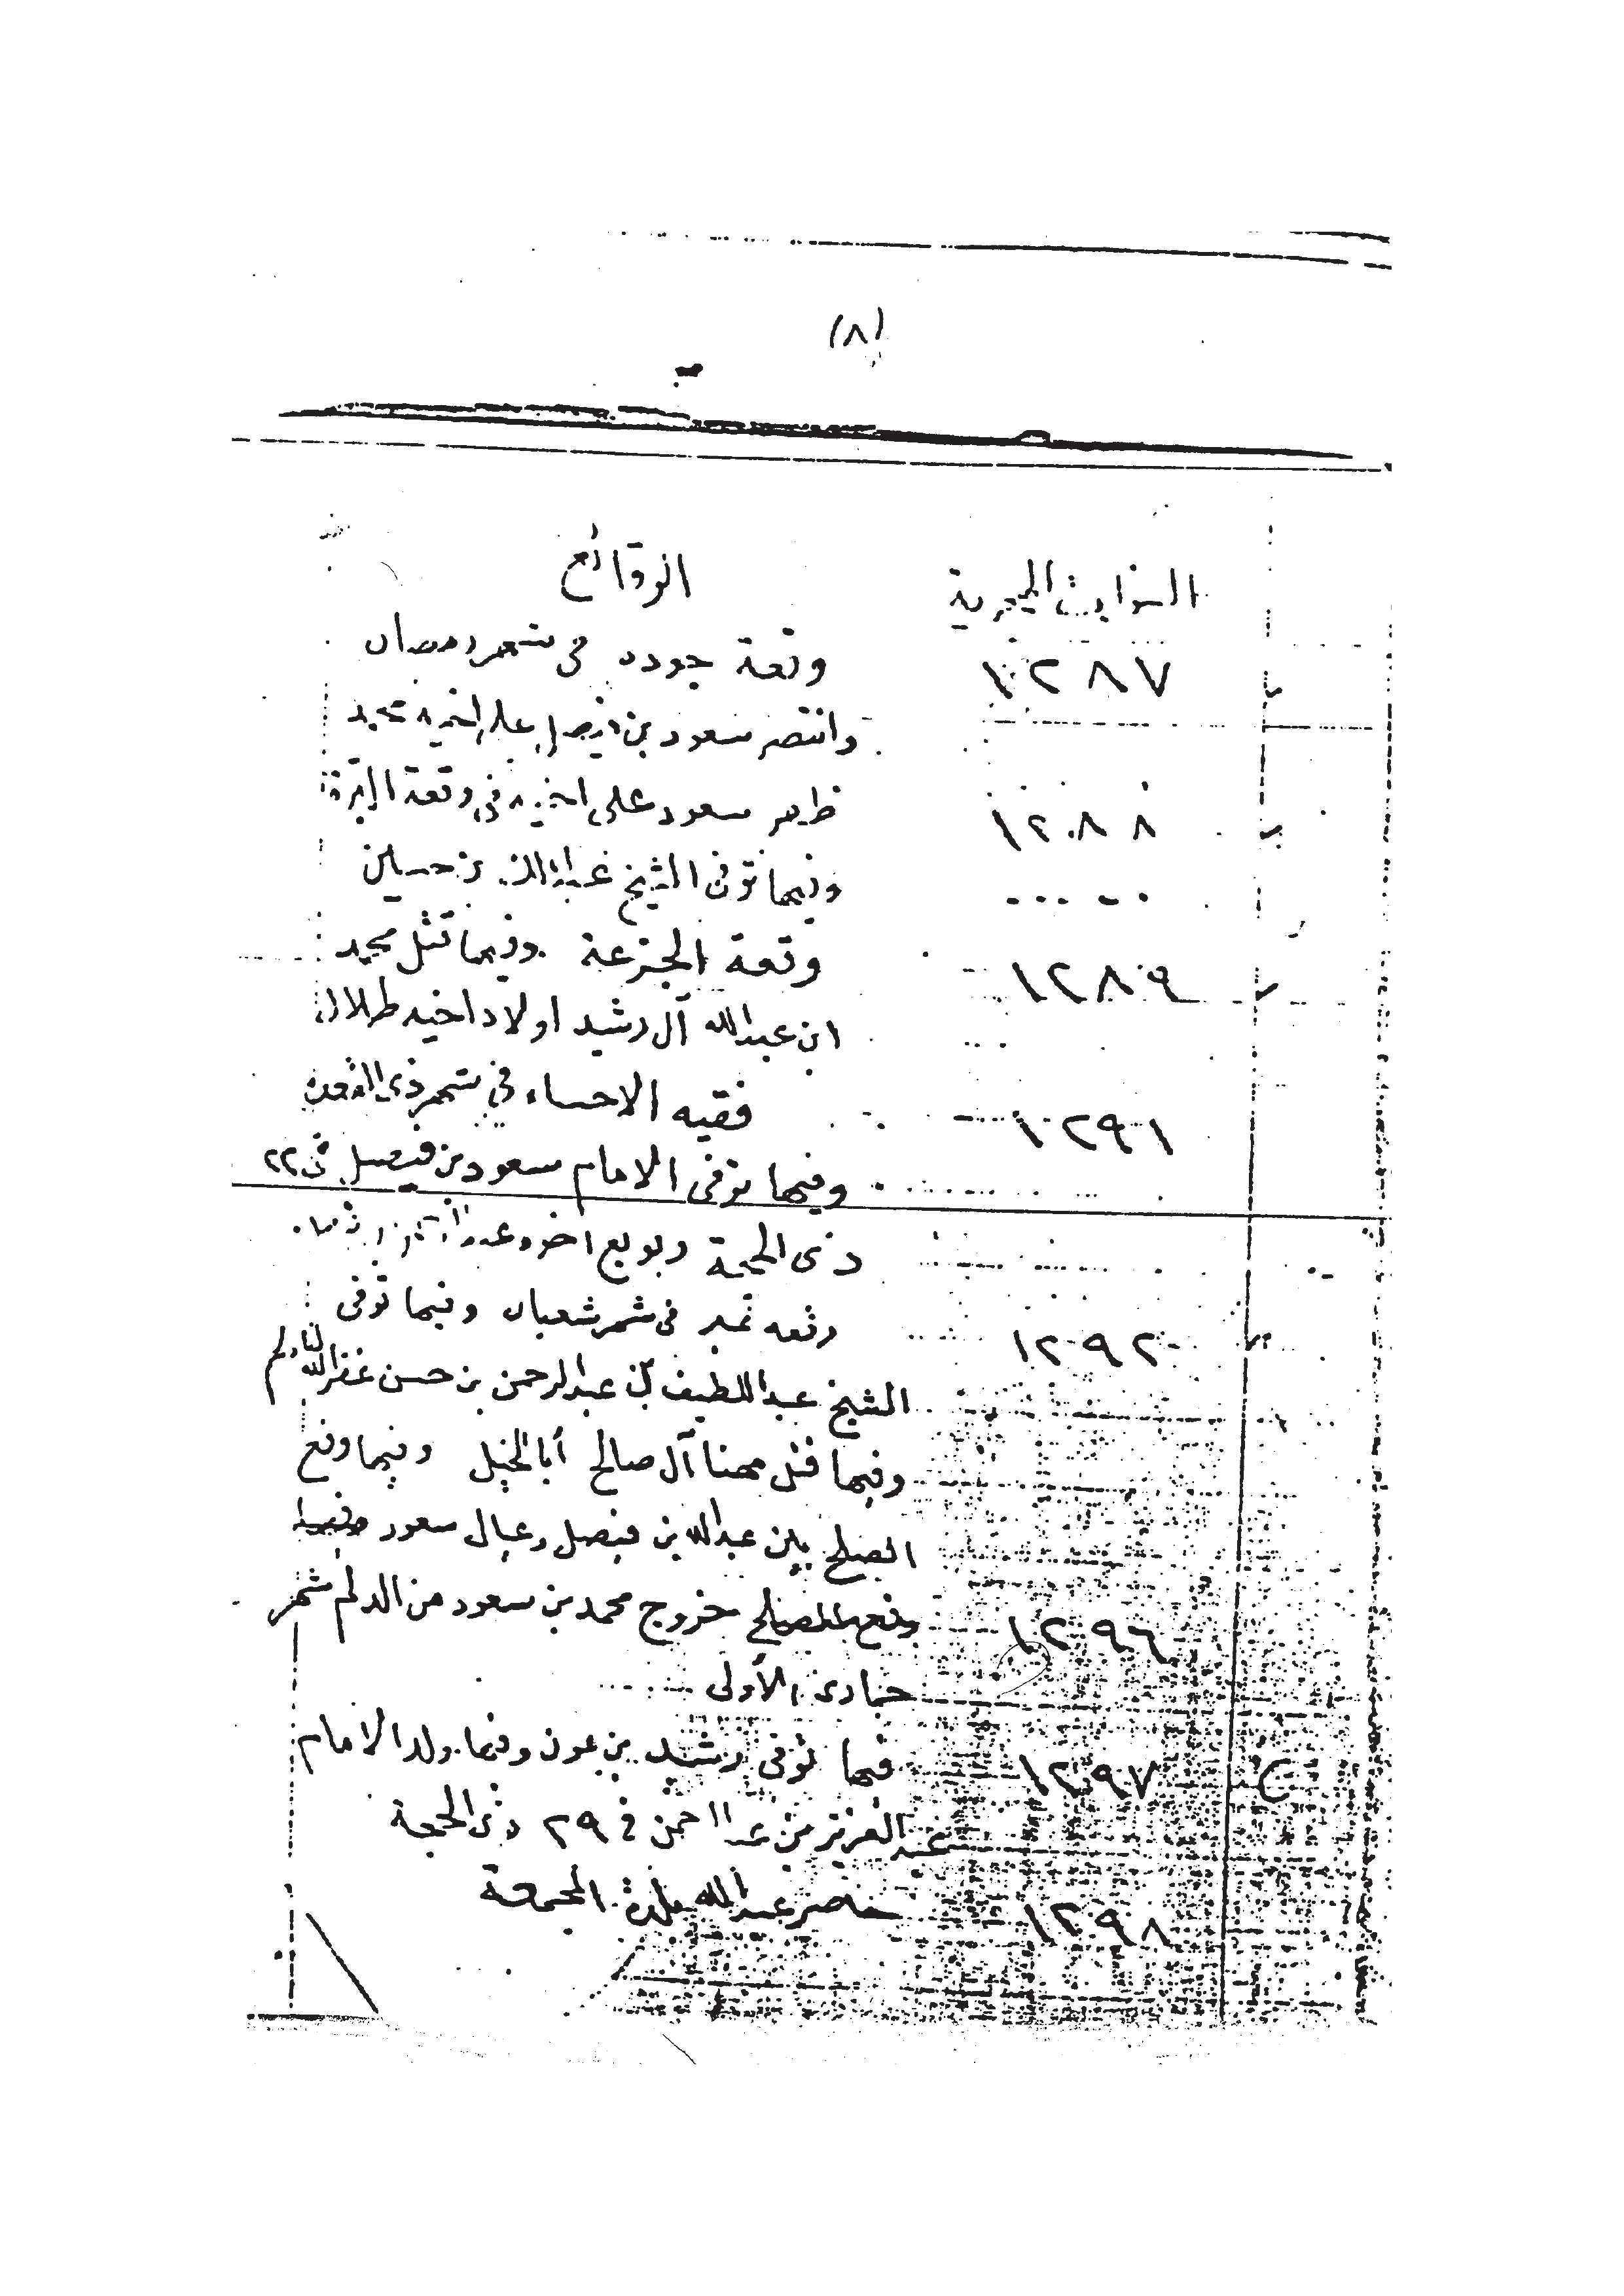 (٨)
السنوات الهجرية الوقائع
١٢٨٧ وقعة جوده في شهر رمضان
وانتصر سعود بن فيصل على اخيه محمد
١٢٨٨ ظهر سعود على اخيه في وقعة البرة
وفيها توفي الشيخ بن حسين
١٢٨٩ وقعة الجزعة وفيها قتل محمد
ابن عبدالله آل رشيد اولاد اخيه طلال
١٢٩١ الاحساء في شهر ذي القعده
وفيها توفى الامام سعود بن فيصل في ٢٢
ذى الحجة وبويع اخوه
١٢٩٢ وقعه في شهر شعبان وفيها توفى
الشيخ عبداللطيف بن عبدالرحمن بن حسن غفر الله لنا ولهم
وفيها قتل مهنا آل صالح أبا الخيل وفيها وقع
الصلح بين عبدالله بن فيصل وعيال سعود
١٢٩٦ خروج محمد بن سعود من الدلم شهر
جمادى الأولى
١٢٩٧ فيها توفى رشيد بن عون وفيها ولد الامام
عبد العزيز بن عبد الرحمن في ٢٩ ذي الحجة
١٢٩٨ حاصر عبدالله بلدة المجمعة